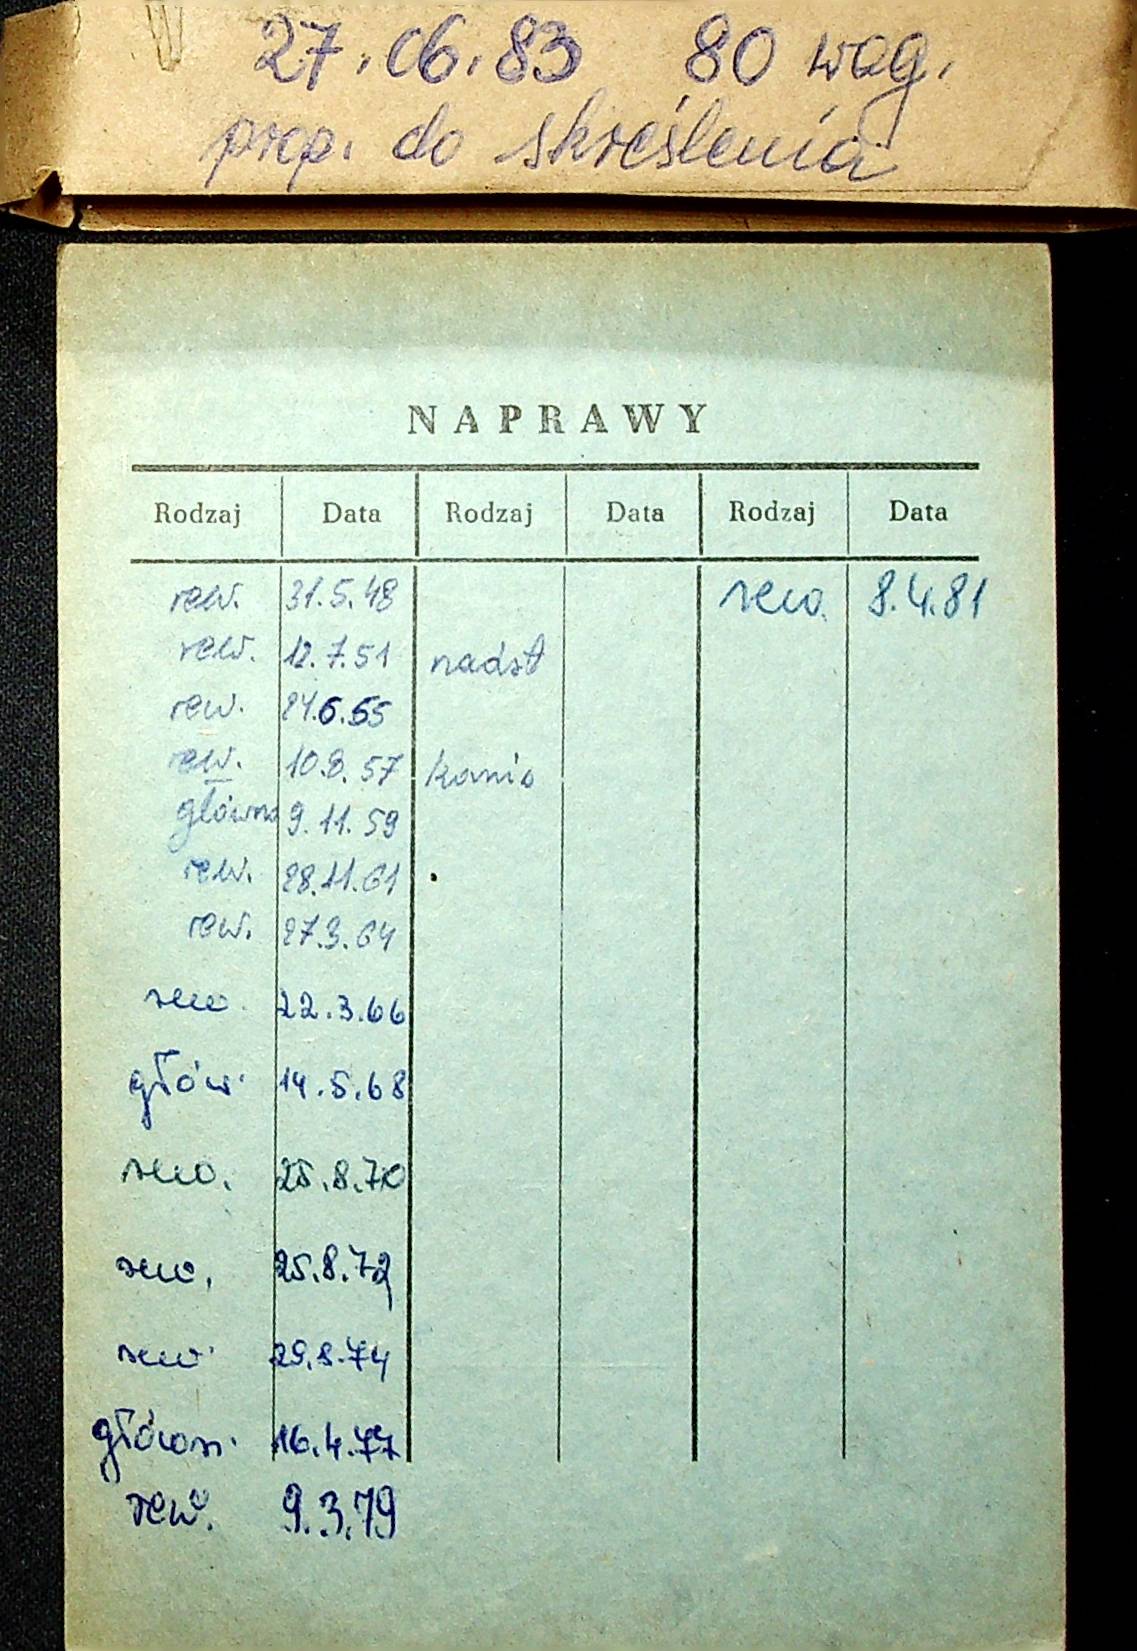 27.06.83 80 wag.
prop. do skreślenia
NAPRAWY
Rodzaj Data Rodzaj Data Rodzaj Data
rew. 31.5.48 rew. 8.4.81
rew. 12.7.51 nadst
rew. 24.6.55
rew. 10.8.57
główna 9.11.59
rew. 28.11.61
rew. 27.3.64
rew. 22.3.66
głów. 14.5.68
rew. 25.8.70
rew. 25.8.72
rew. 29.8.74
główn. 16.4.77
rew. 9.3.79